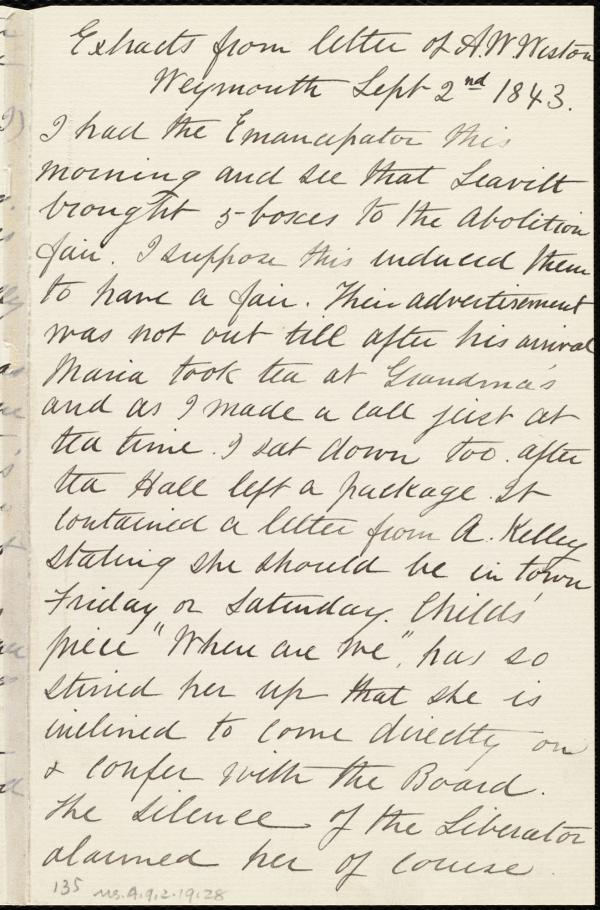 Extracts from letter of A.W. Weston
Weymouth Sept 2nd 1843.
I had the Emancipator this
morning and see that Leavitt
brought 5 boxes to the Abolition
fair. I suppose this induced them
to have a fair. Their advertisement
was not out till after his arrival
Maria took tea at Grandma's
and as I made a call just at
tea time. I sat down too. after
tea Hall left a package. It
contained a letter from A. Kelley
stating she should be in town
Friday or Saturday. Childs'
piece "Where are We", has so
stirred her up that she is
inclined to come directly on
& confer with the Board.
The silence of the Liberator
alarmed her of course.
135 Ms.A.9.2.19.28